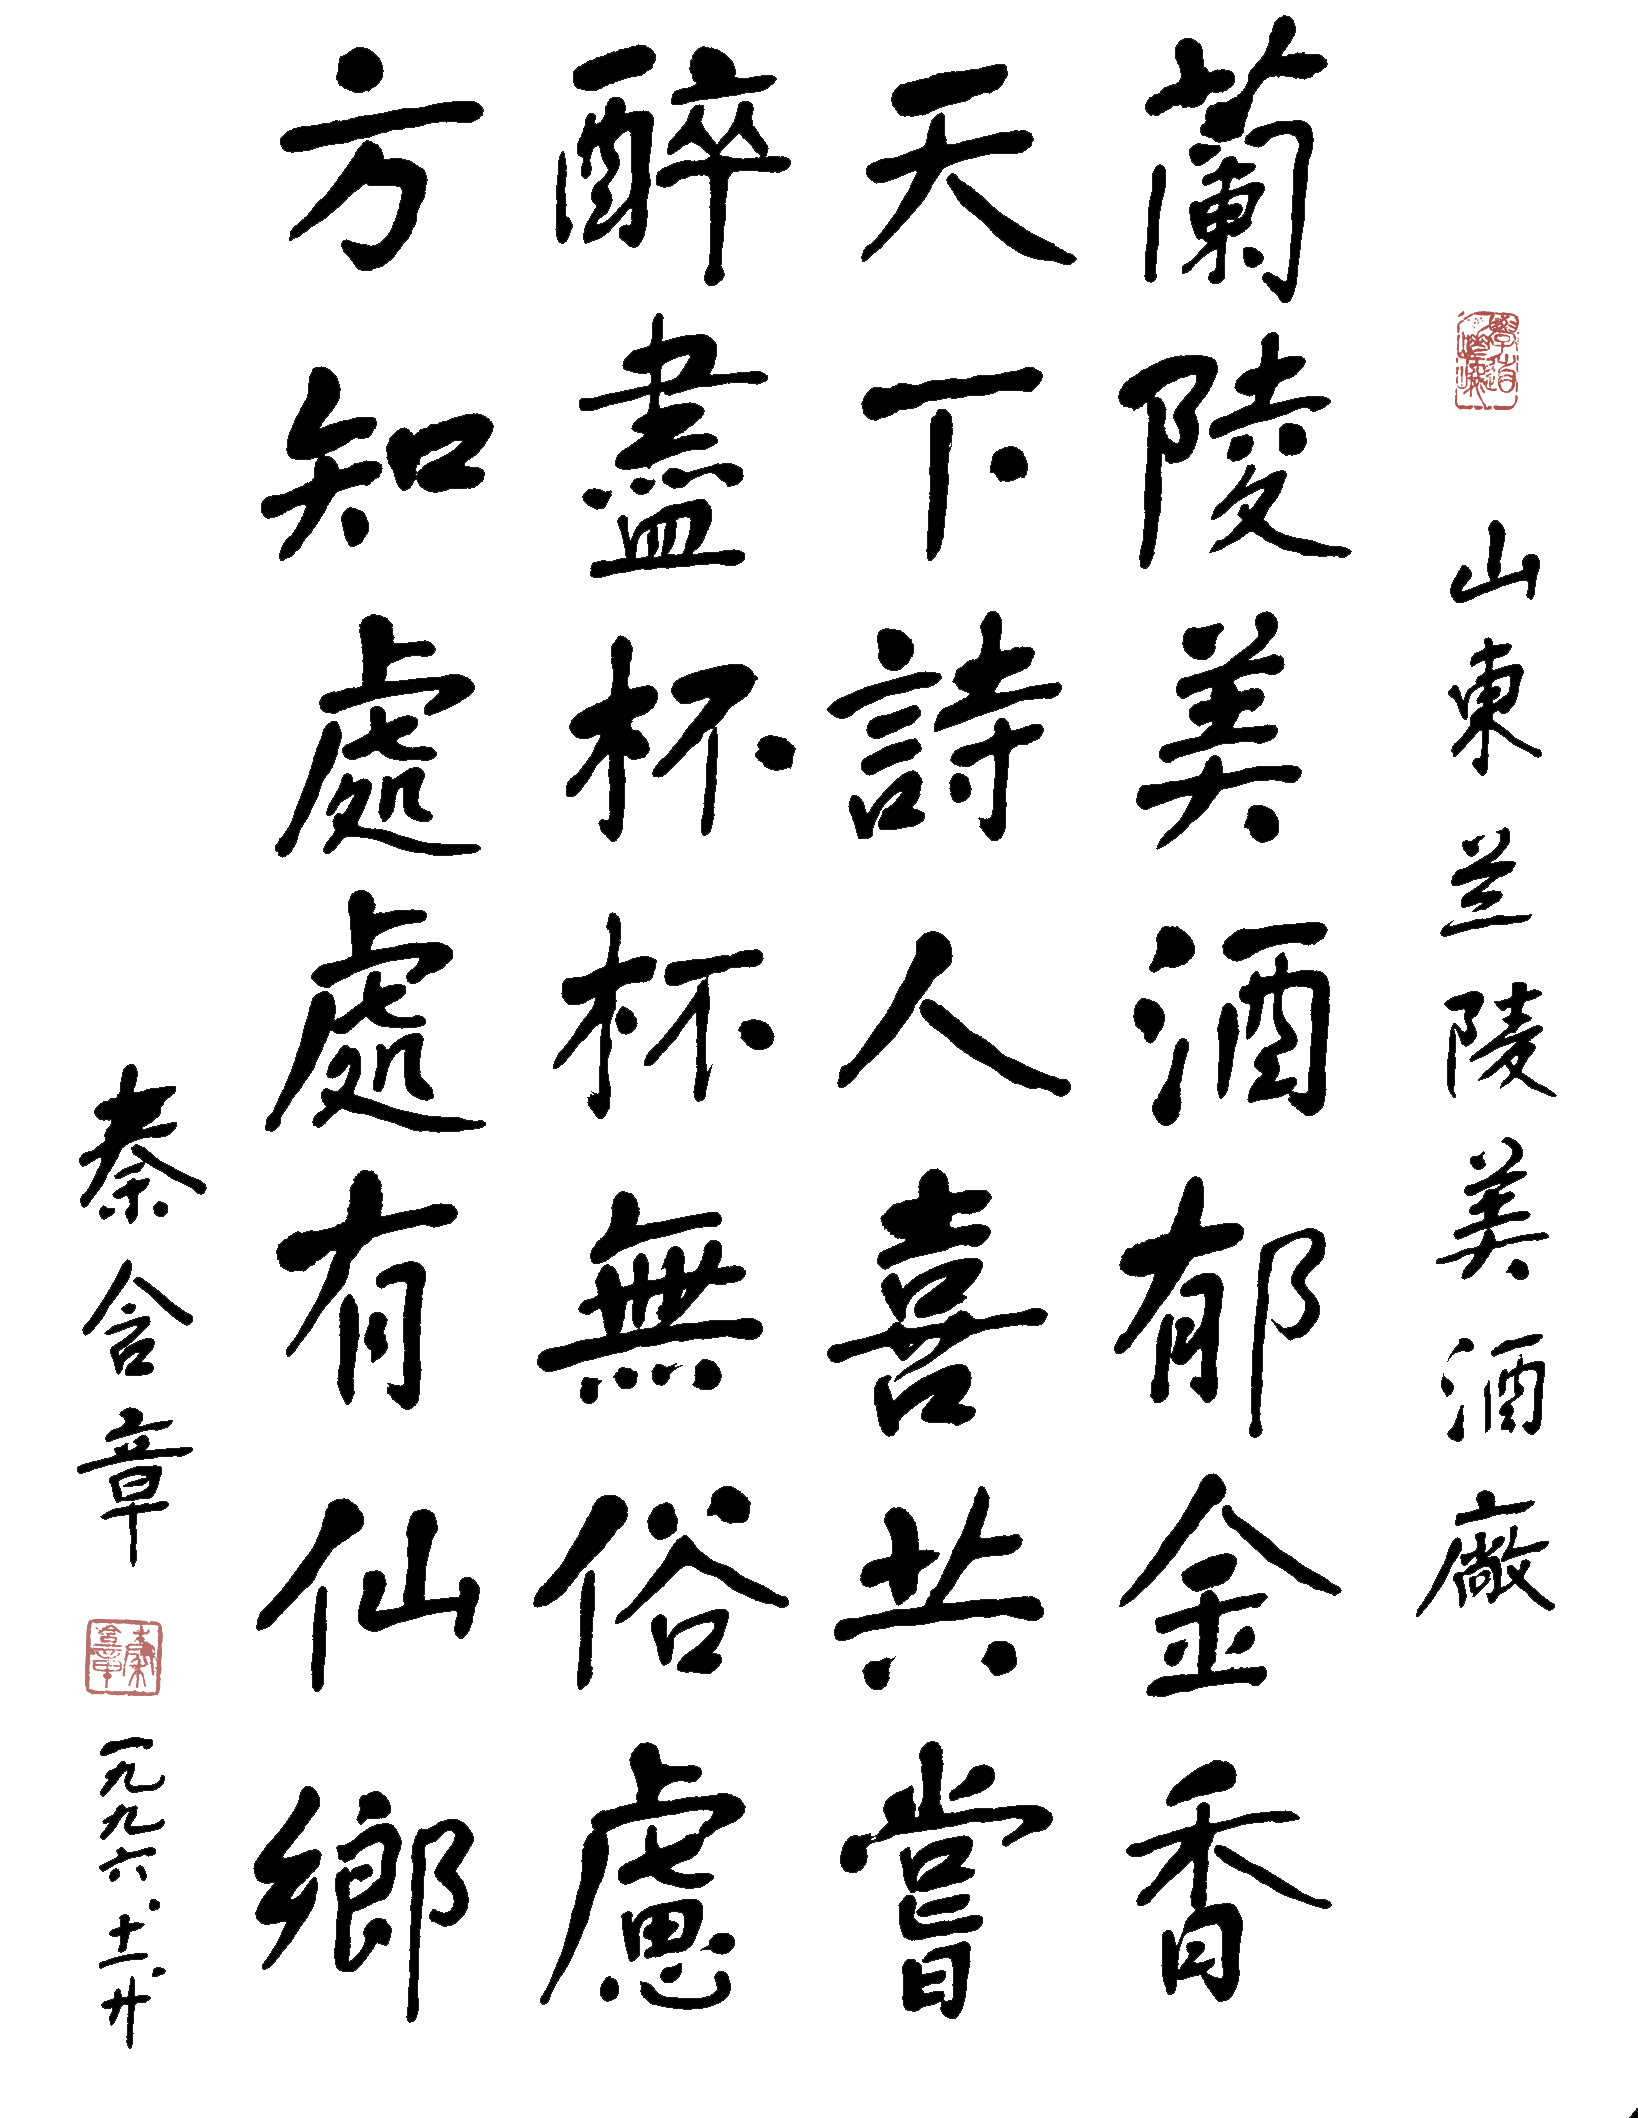 山東兰陵美酒廠
蘭陵美酒郁金香
天下詩人喜共嘗
醉盡杯杯無俗慮
方知處處有仙鄉
秦含章
秦含章
一九九六.十一.廿